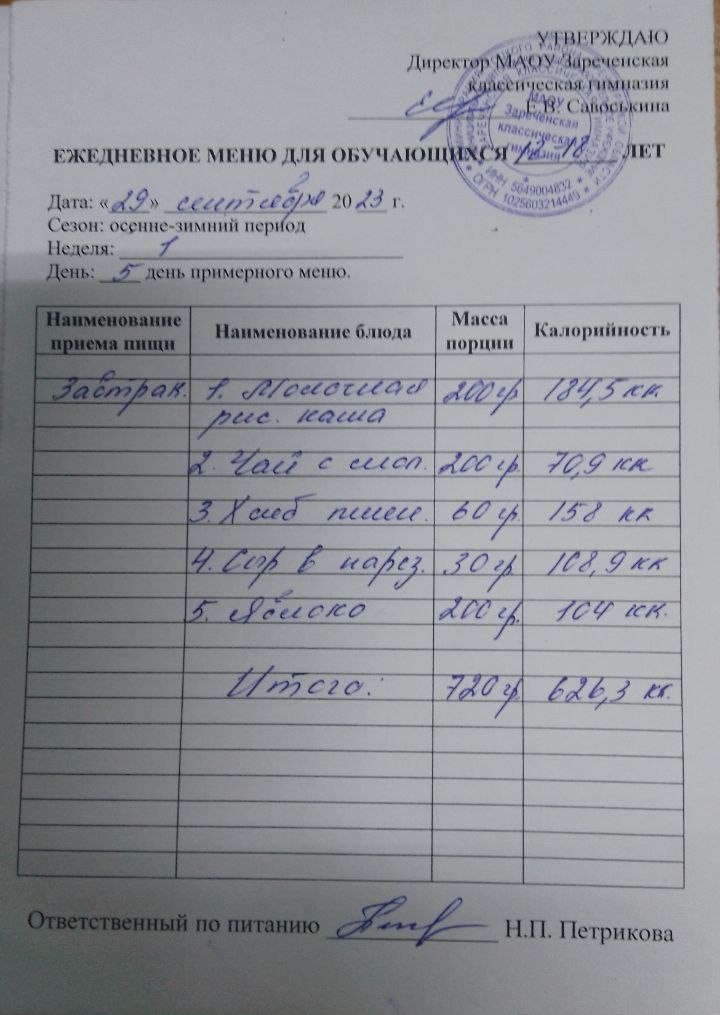 УТВЕРЖДАЮ
Директор МАОУ Зареченская
классическая гимназия
Е.В. Савоськина
МАОУ
Зареченская
классическая
гимназия
ИНН 5649004832
ОГРН 1025603214449
ЕЖЕДНЕВНОЕ МЕНЮ ДЛЯ ОБУЧАЮЩИХСЯ 12-18 ЛЕТ
Дата: «29» сентября 2023 г.
Сезон: осенне-зимний период
Неделя: 1
День: 5 день примерного меню.
Наименование приема пищи Наименование блюда Масса порции Калорийность
Завтрак. 1. Молочная 200 гр 184,5 кк.
рис. каша
2. Чай с 200 гр. 70,9 кк
3. Хлеб пшен. 60 гр. 158 кк
4. Сыр в нарез. 30 гр 108,9 кк
5. Яблоко 200 гр. 104 кк.
Итого: 720 гр. 626,3 кк.
Ответственный по питанию Н.П. Петрикова